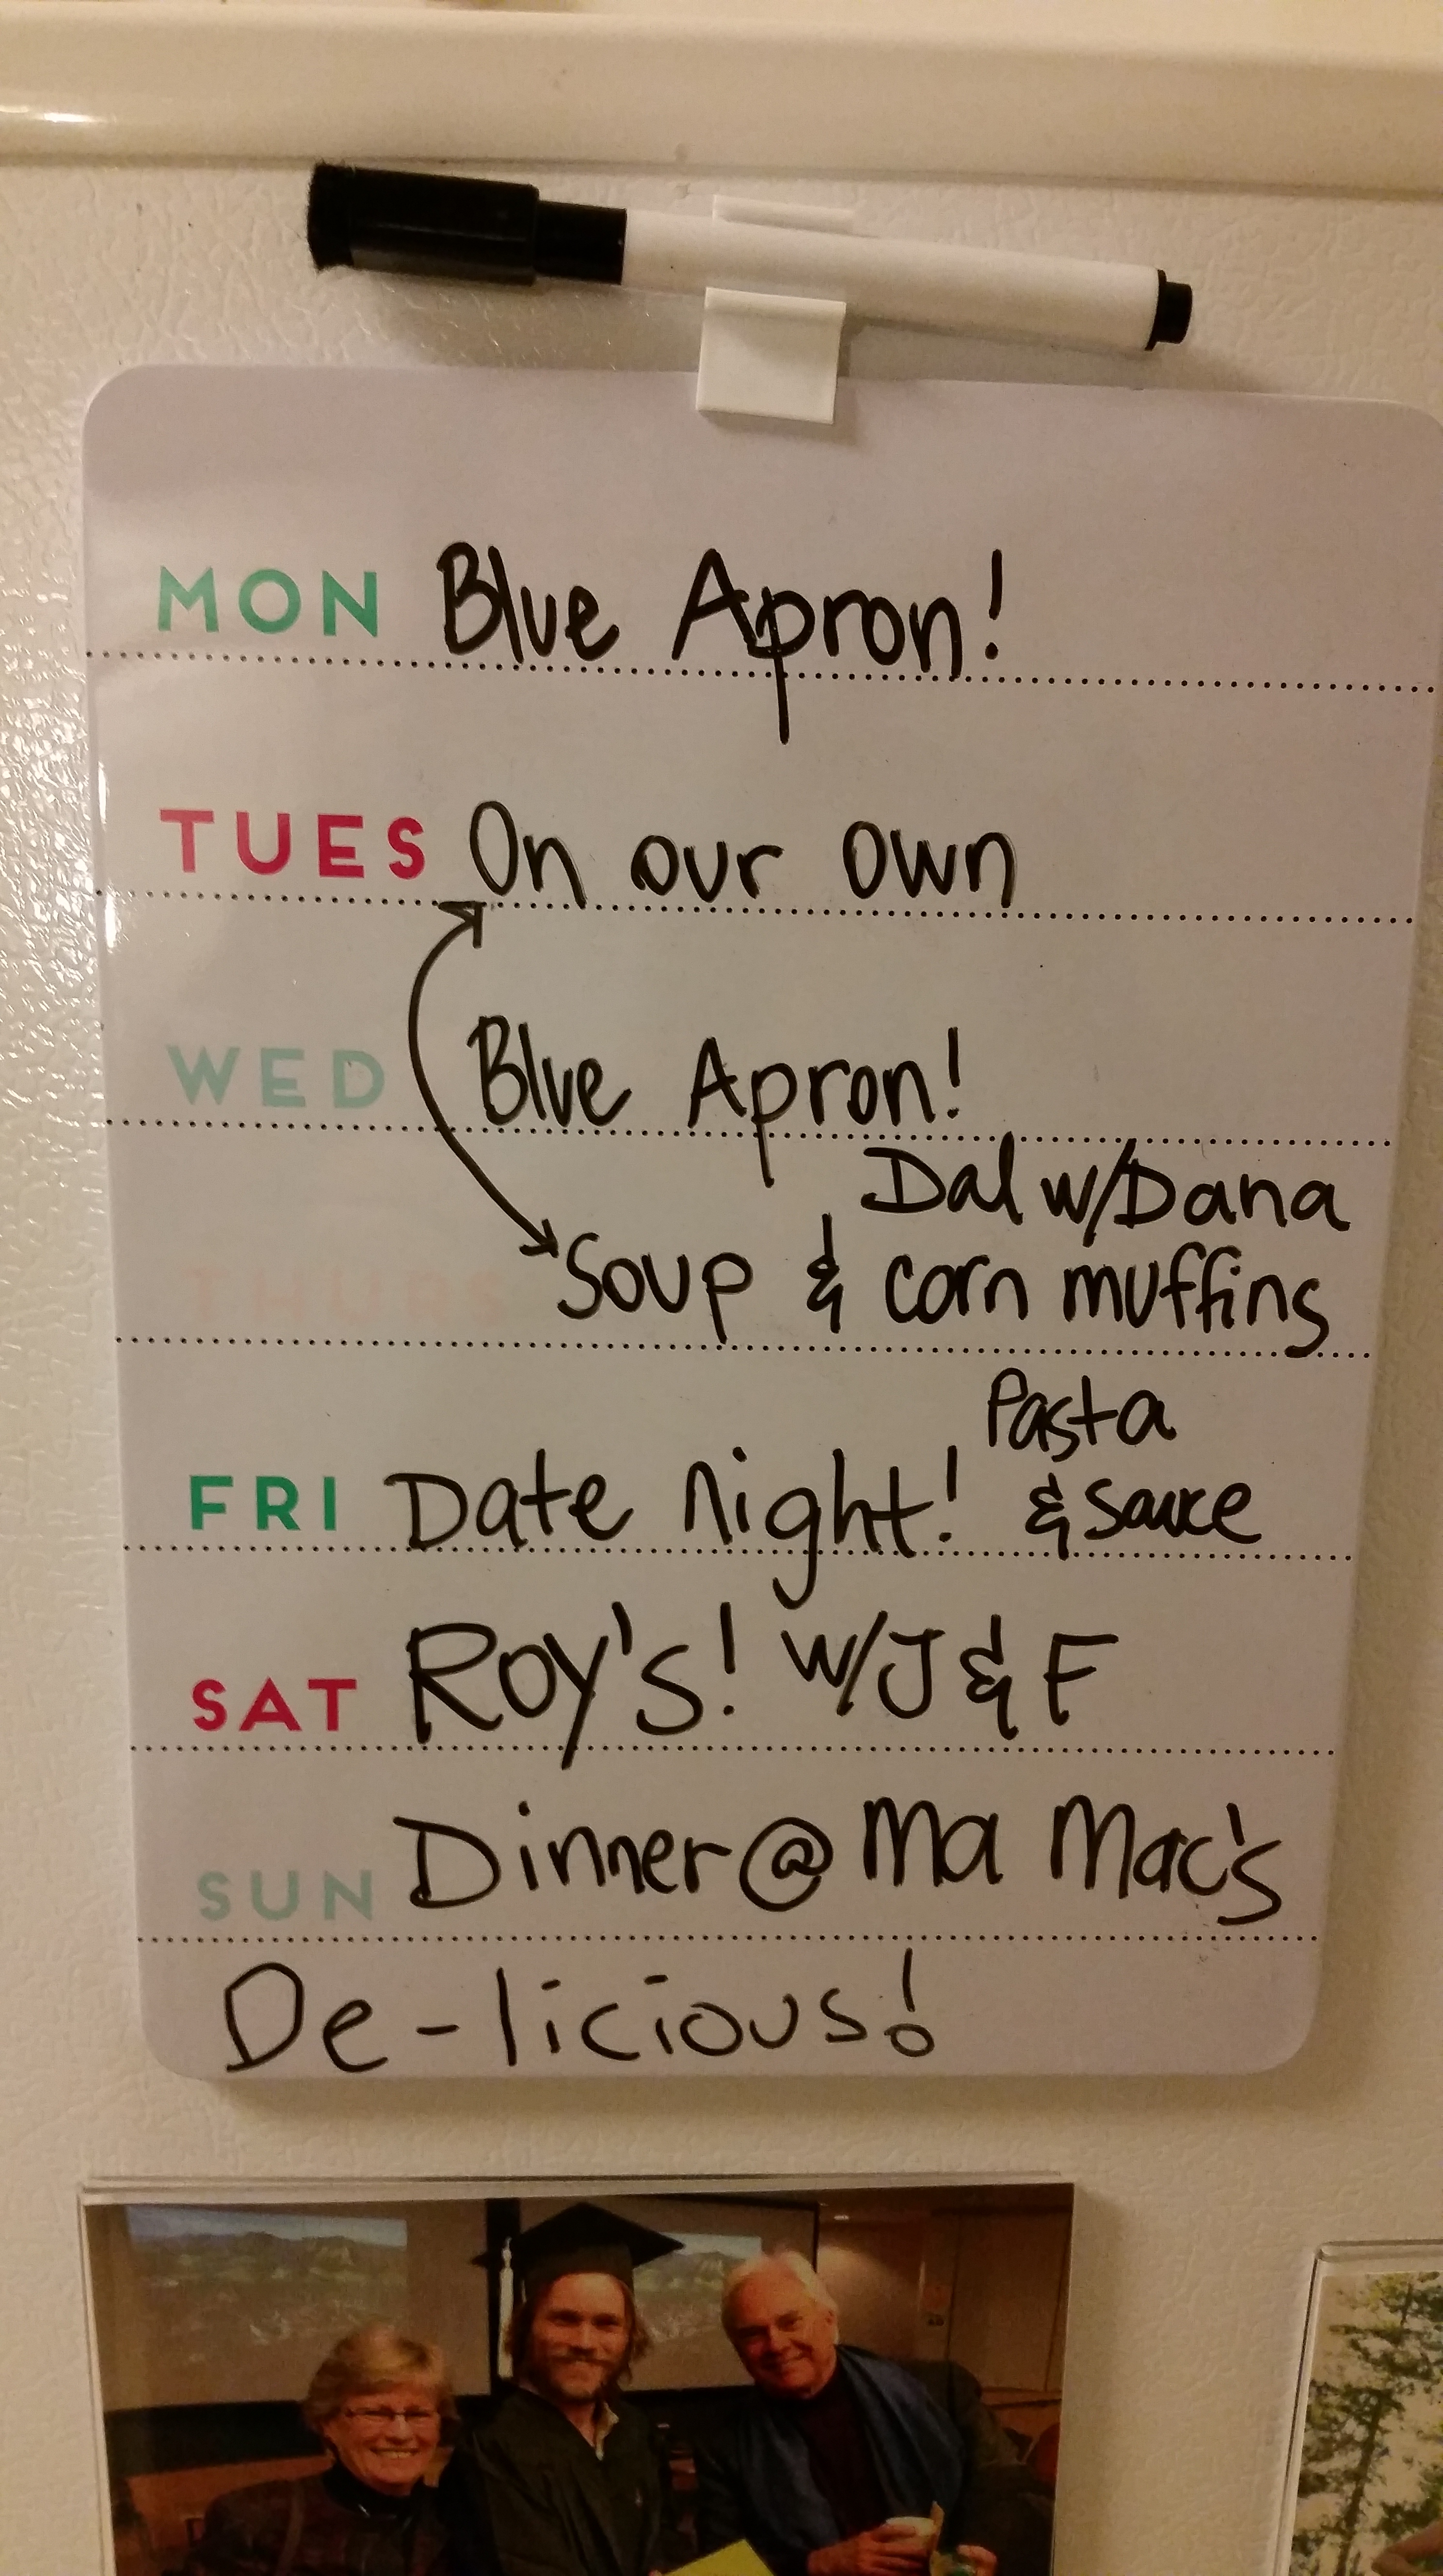 MON Blue Apron!
TUES On our own
WED Blue Apron!
Dal w/Dana
THURS Soup & corn muffins
Pasta
FRI Date night! & sauce
SAT Roy's! w/J & F
SUN Dinner @ Ma Mac's
De-licious!